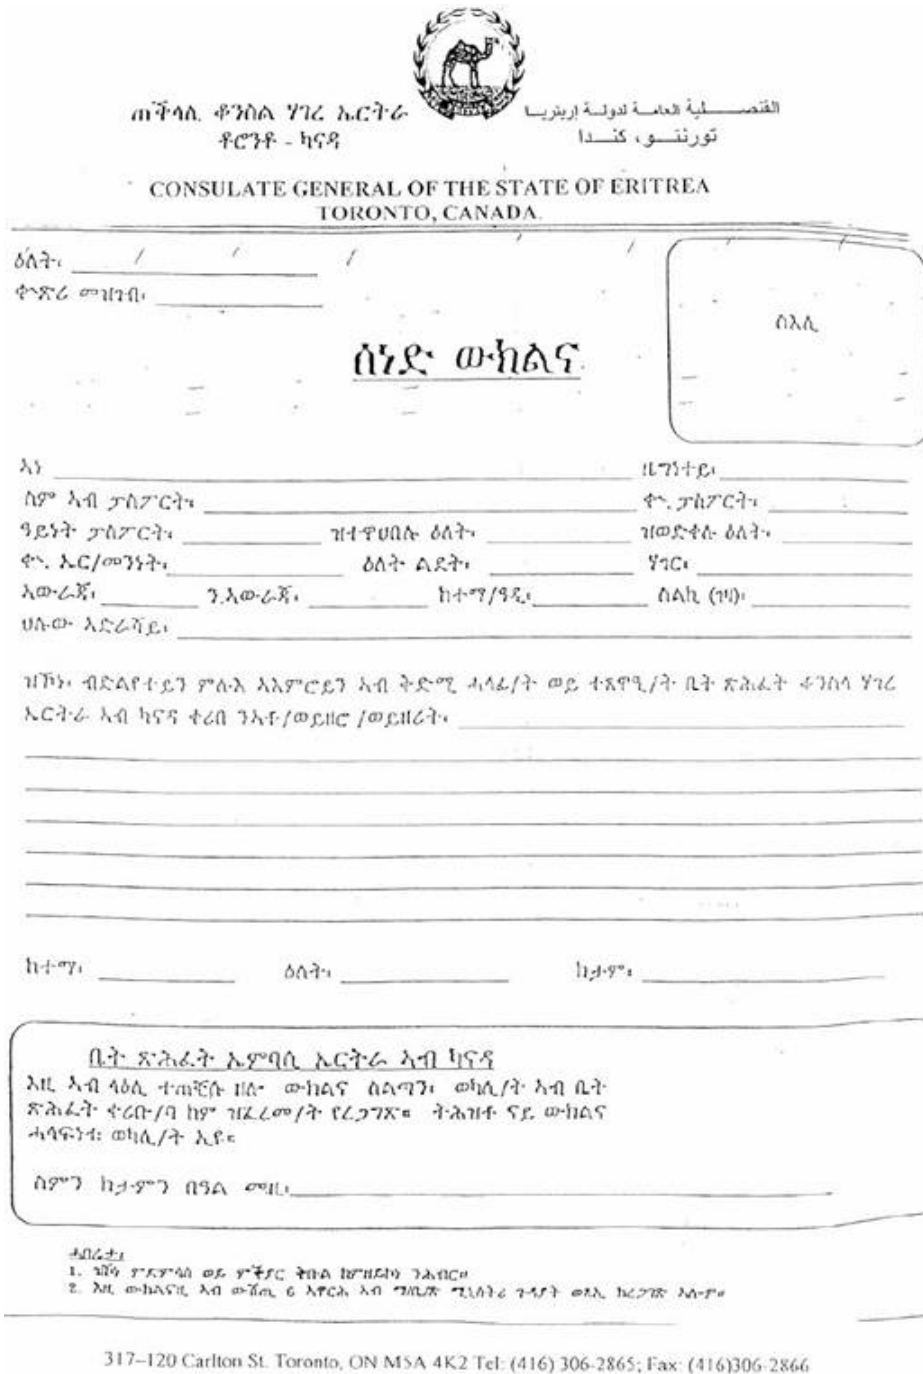 ጠቕላሊ ቆንስል ሃገረ ኤርትራ
ቶሮንቶ - ካናዳ
القنصلية العامة لدولة إريتريا
تورنتو، كندا
CONSULATE GENERAL OF THE STATE OF ERITREA
TORONTO, CANADA
ዕለት፡
ቍጽሪ መዝገብ፡
ስእሊ
ሰነድ ውክልና
ኣነ ዜግነተይ፡
ስም ኣብ ፓስፖርት፡ ቍ. ፓስፖርት፡
ዓይነት ፓስፖርት፡ ዝተዋህበሉ ዕለት፡ ዝወድቀሉ ዕለት፡
ቍ. ኤር/መንነት፡ ዕለት ልደት፡ ሃገር፡
ኣውራጃ፡ ን.ኣውራጃ፡ ከተማ/ዓዲ፡ ስልኪ (ገዛ)፡
ህሉው ኣድራሻይ፡
ዝኾነ፡ ብድልየተይን ምሉእ ኣእምሮይን ኣብ ቅድሚ ሓላፊ/ት ወይ ተጸዋዒ/ት ቤት ጽሕፈት ቆንስላ ሃገረ
ኤርትራ ኣብ ካናዳ ቀሪበ ንኣቶ/ወይዘሮ/ወይዘሪት፡
ከተማ፡ ዕለት፡ ክታም፡
ቤት ጽሕፈት ኤምባሲ ኤርትራ ኣብ ካናዳ
እዚ ኣብ ላዕሊ ተጠቒሱ ዘሎ ውክልና ስልጣን፡ ወካሊ/ት ኣብ ቤት
ጽሕፈት ቀሪቡ/ባ ከም ዝፈረመ/ት የረጋግጽ። ትሕዝቶ ናይ ውክልና
ሓላፍነቱ ወካሊ/ት እዩ።
ስምን ክታምን በዓል መዚ፡
ሓበሬታ፡
1. ዝኾነ ምድምሳስ ወይ ምችያር ቅቡል ከምዘይኮነ ንሕብር።
2. እዚ ውክልናዚ ኣብ ውሽጢ 6 ኣዋርሕ ኣብ ሚኒስትሪ ጉዳያት ወጻኢ ክረጋገጽ ኣለዎ።
317–120 Carlton St. Toronto, ON M5A 4K2 Tel: (416) 306-2865; Fax: (416)306-2866